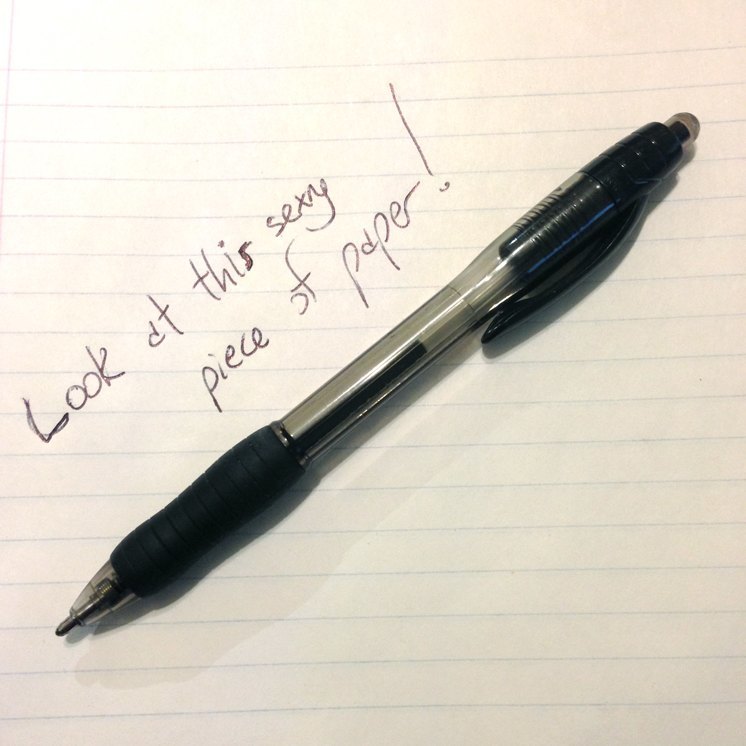 Look at this sexy
piece of paper!